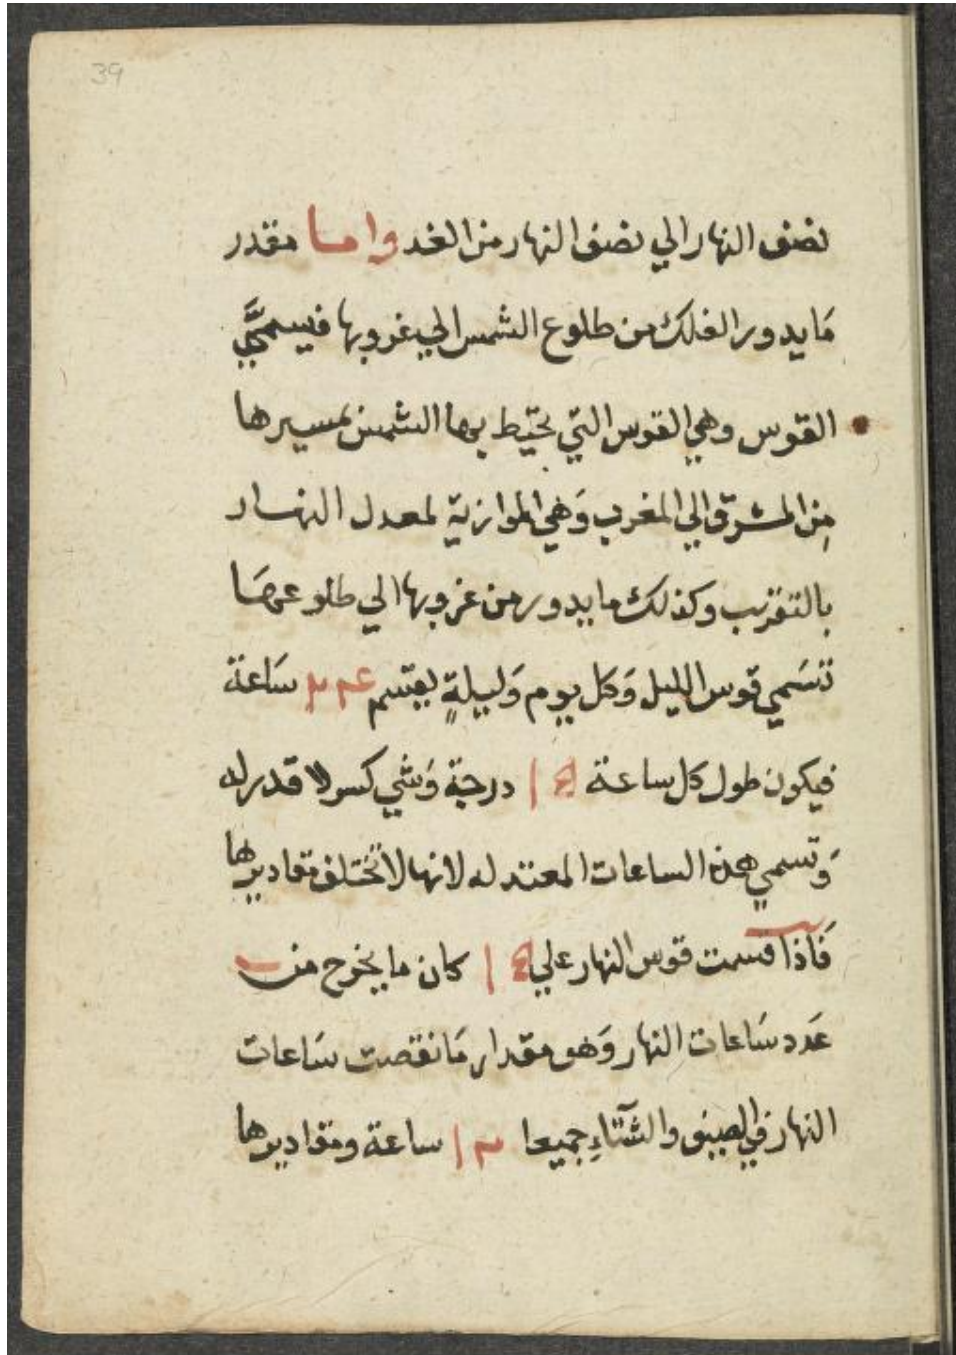 39
نصف النهار الي نصف النهار من الغد واما مقدر
مَا يدور الفلك من طلوع الشمس الي غروبها فيسميَّ
القوس وهي القوس التي تحيّط بها الشمس بمسيرها
مِن المشرق الي المغرب وَهي الموازية لمعدل النهار
بالتقريب وكذلك ما يدور من غروبها الي طلوعهَا
تسَمي قوس الليل وَكل يوم وَليلةٍ يقسم ٢٤ سَاعة
فيكون طول كل ساعة ١٥ درجة وَشي كسر لا قدر له
وَتسمي هذه الساعات المعتدله لانها لا تختلف مقاديرها
فَاذا قسمت قوس النهار علي ١٥ كان ما يخرج من
عَدد سَاعات النهار وَهو مقدار مَا نقصت سَاعات
النهار في الصيف والشتاءِ جميعا ١٢ ساعة ومقاديرها